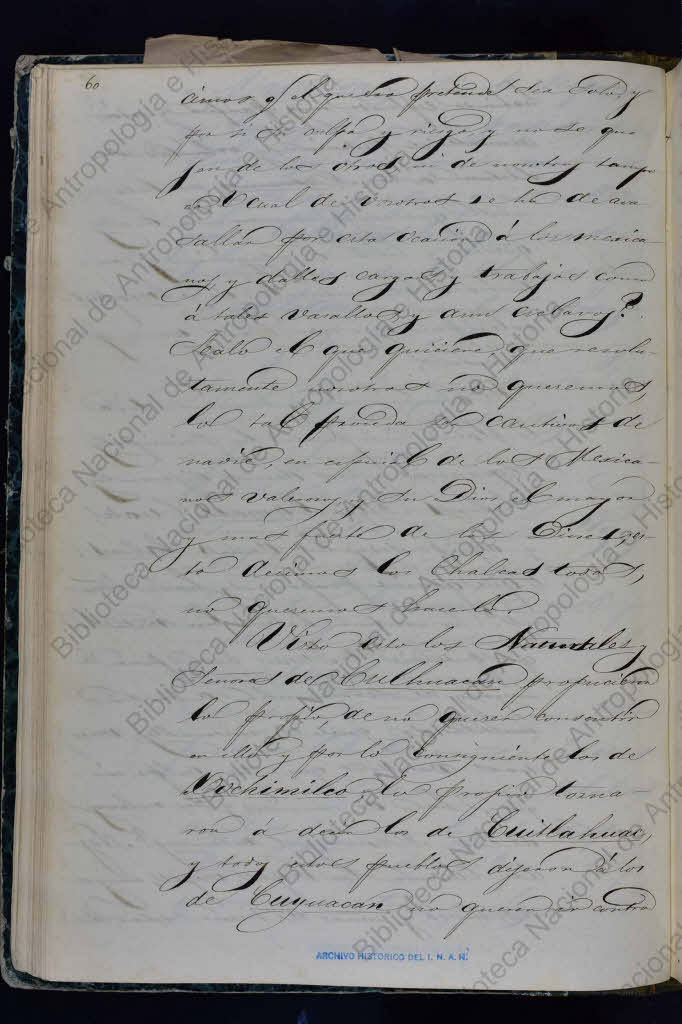 60
por si su culpa y riesgo y no se que
jen de los otros ni de nosotros, tampo
co cual de vosotros se ha de ava
sallar por esta ocasion á los mexica
nos, y dalles cargas y trabajos como
á tales vasallos y aun esclavos?
Sealo el que quisiere que resolu
tamente nosotros no queremos,
los cautivos de
nadie, en especial de los Mexica-
nos valerosos y su Dios el mayor
y mas fuerte de los Dioses, es
to decimos los Chalcas todos,
no queremos hacerlo.
Visto esto los Naturales y
Señores de Culhuacan propucieron
lo propio, de no querer consentir
en ello, y por lo consiguiente los de
Xochimilco, lo propio torna-
ron á decir los de Cuitlahuac,
y todos estos pueblos dijeron á los
de Cuyuacan no querer ir contra
ARCHIVO HISTORICO DEL I. N. A. H.
Biblioteca Nacional de Antropología e Historia